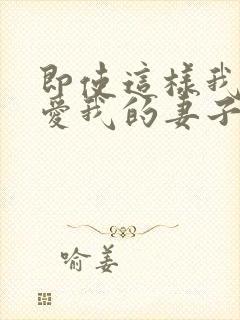 即使這樣我
愛我的妻子
喻姜